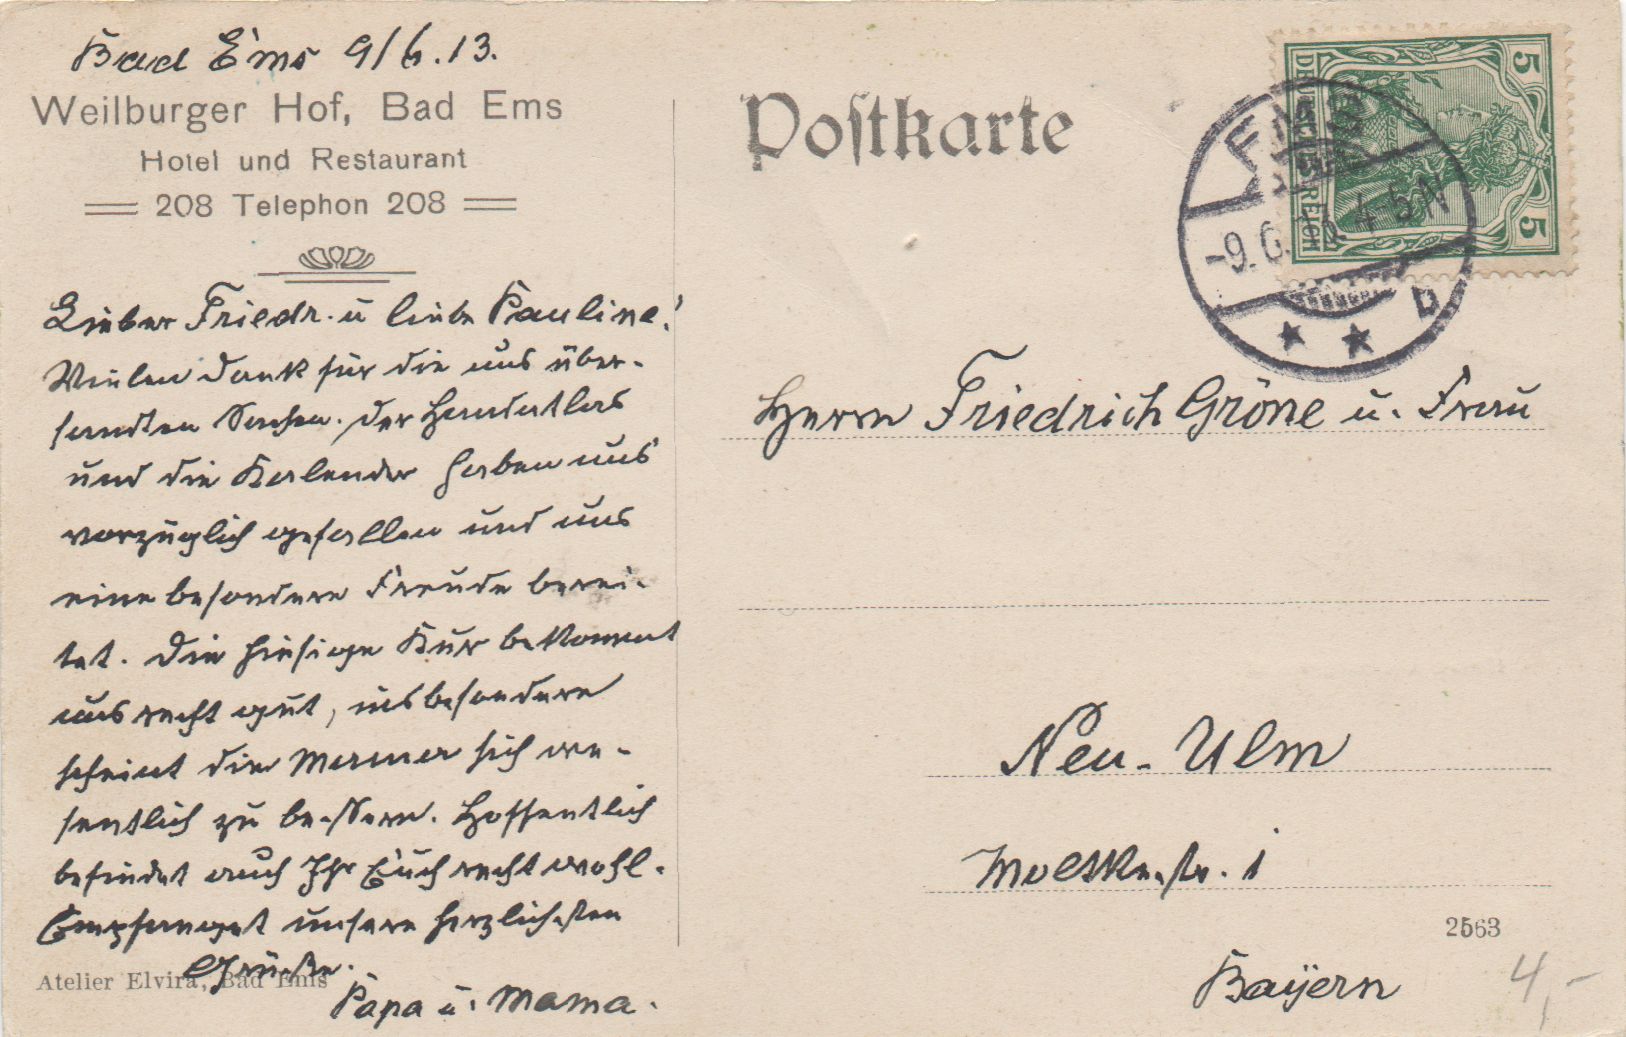 Bad Ems 9/6.13.
Weilburger Hof, Bad Ems
Hotel und Restaurant
208 Telephon 208
Lieber Friedr. u liebe Pauline!
Vielen Dank für die uns über-
sandten Sachen. Der Handatlas
und die Kalender haben uns
vorzüglich gefallen und uns
eine besondere Freude berei-
tet. Die hiesige Kur bekommt
uns recht gut, insbesondere
scheint die Mama sich we-
sentlich zu bessern. Hoffentlich
befindet auch Ihr Euch recht wohl.
Empfanget unsere herzlichsten
Grüße.
Papa u. Mama.
Atelier Elvira, Bad Ems
Postkarte
5
DEUTSCHES REICH
5
EMS
-9.6. 4-5N
* * b
Herrn Friedrich Gröne u. Frau
Neu-Ulm
Moltkestr. 1
2563
Bayern
4,-